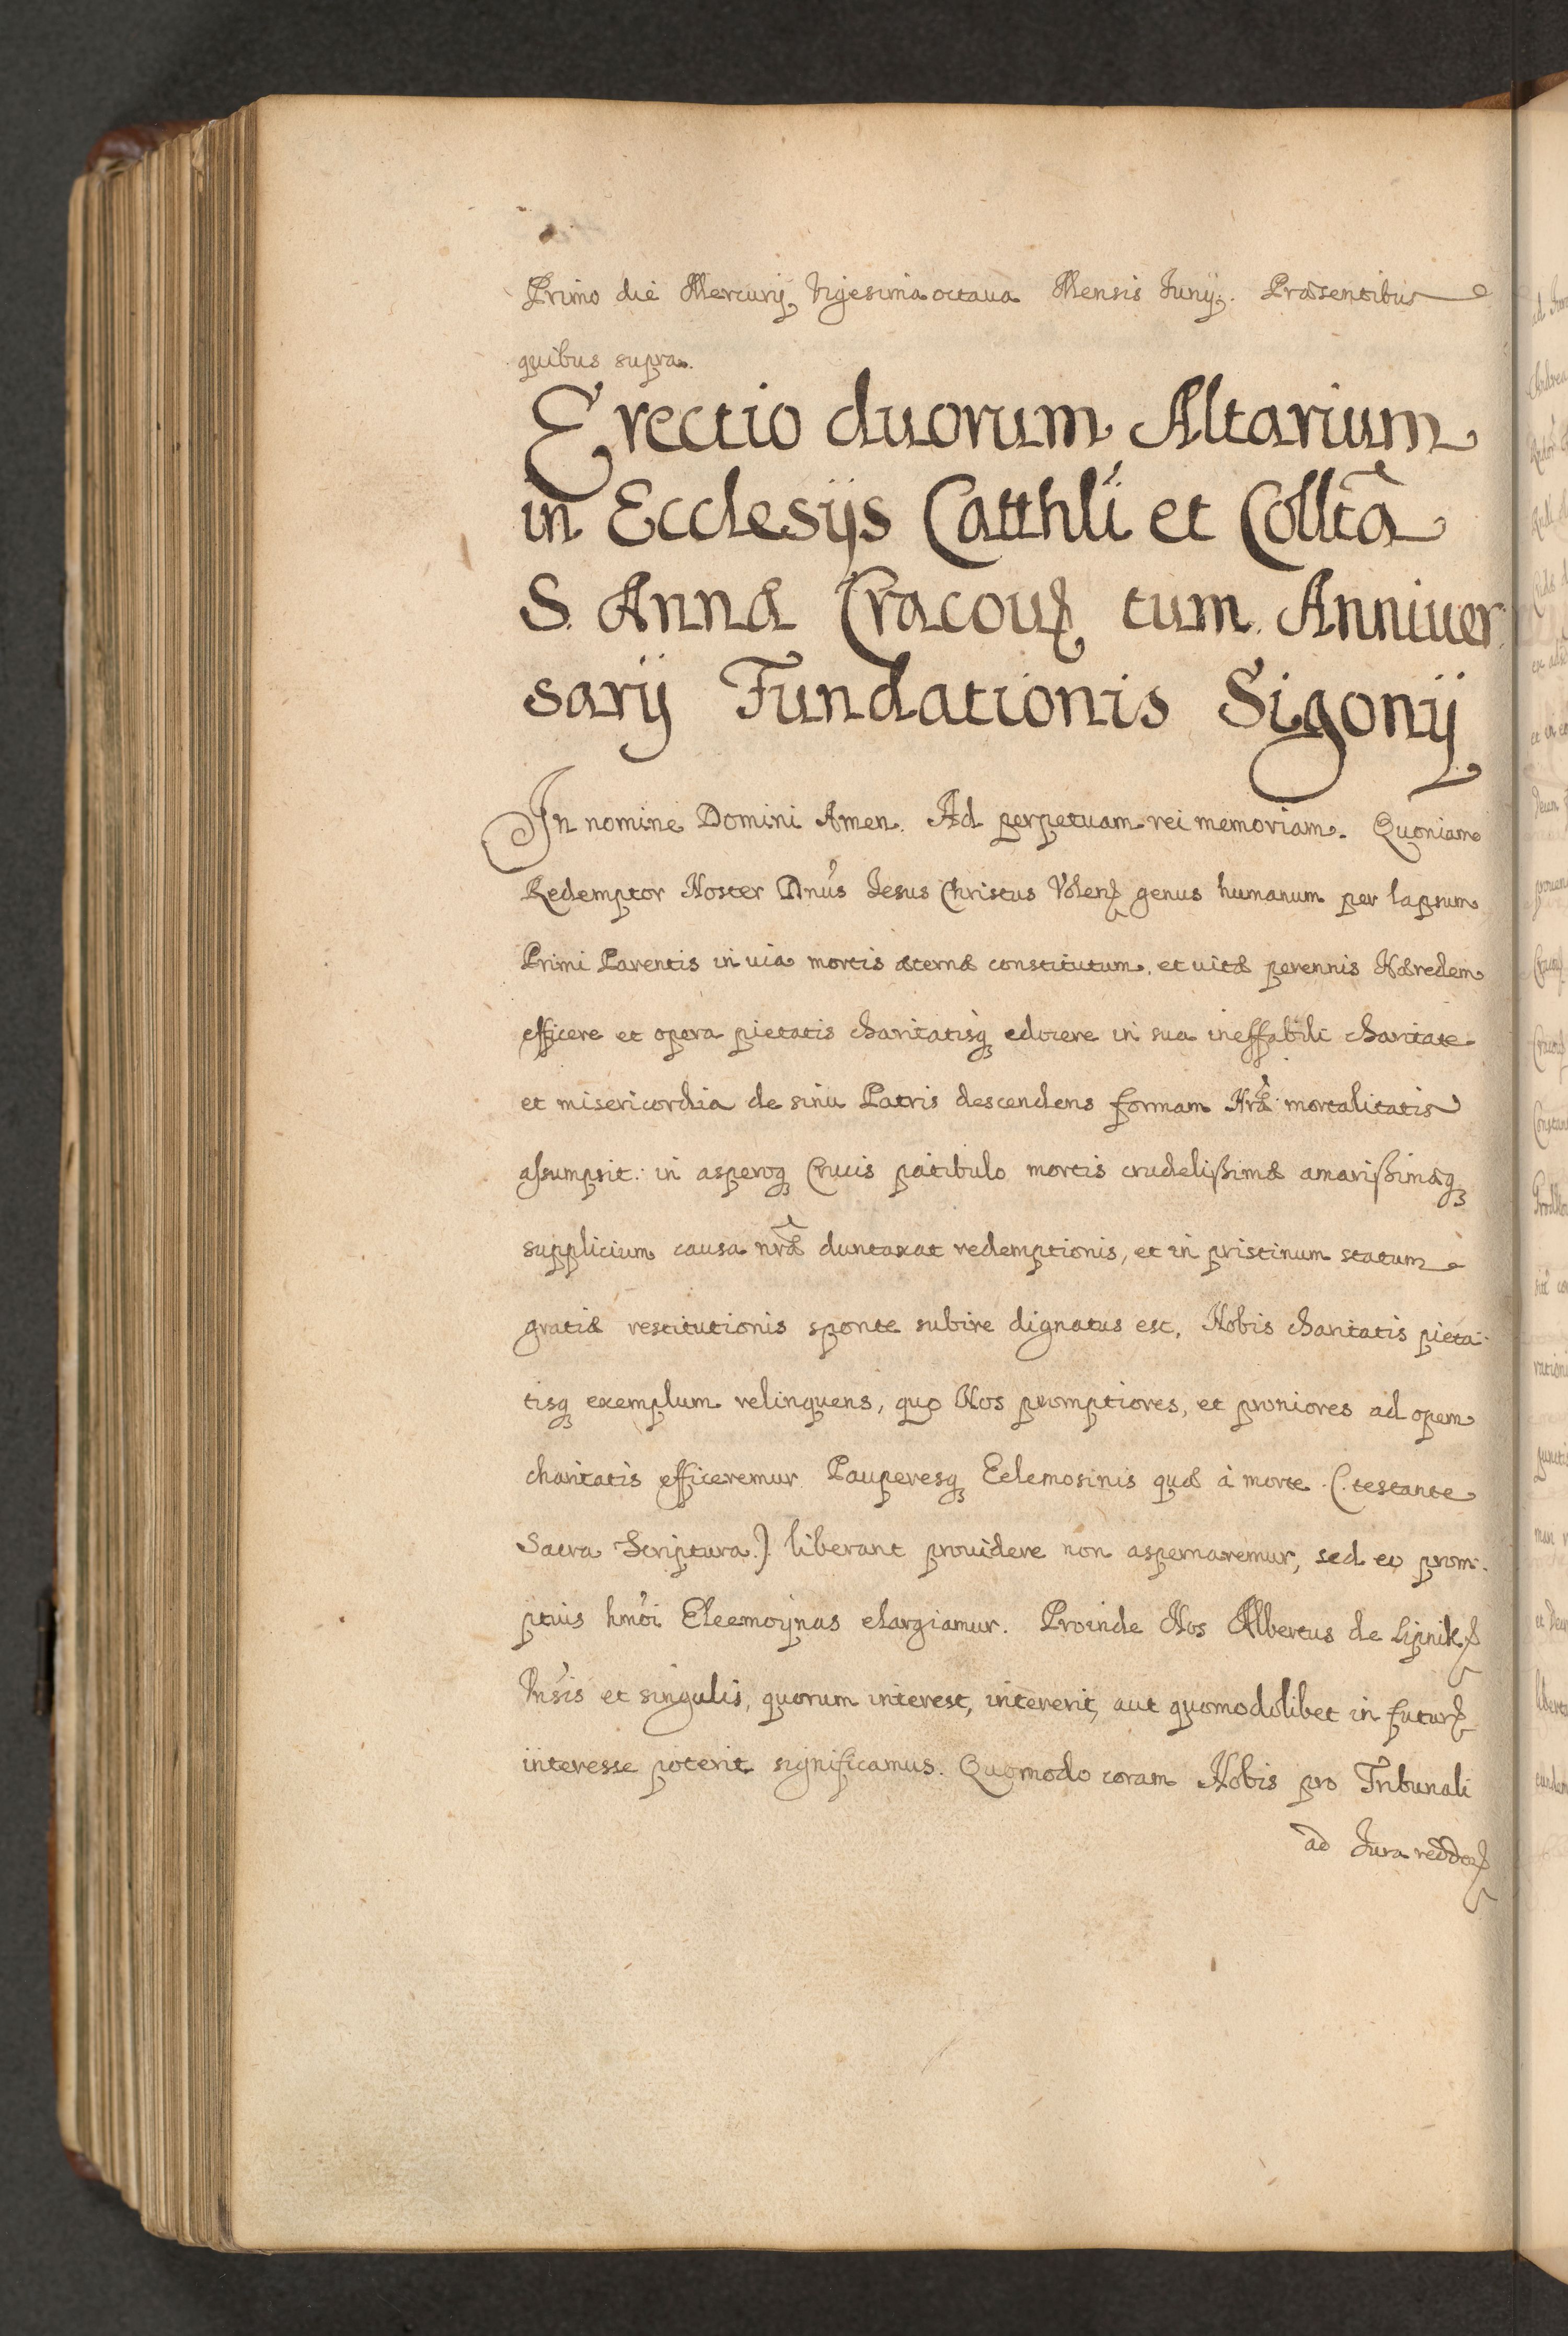 Primo die Mercurij Vigesima octaua Mensis Junij. Præsentibus
quibus supra.
Erectio duorum Altarium
in Ecclesijs Catthli et Collta
S. Annæ Cracou tum Anniuer
sarij Fundationis Sigonij
In nomine Domini Amen. Ad perpetuam rei memoriam. Quoniam
Redemptor Noster Dnus Jesus Christus Volens genus humanum per lapsum
Primi Parentis in uia mortis æternæ constitutum, et uitæ perennis Hæredem
efficere et opera pietatis charitatisq edocere in sua ineffabili charitate
et misericordia de sinu Patris descendens formam Nræ mortalitatis
assumpsit: in asperoq Crucis patibulo mortis crudelissimæ amarissimæq
supplicium causa nræ duntaxat redemptionis, et in pristinum statum
gratiæ restitutionis sponte subire dignatus est, Nobis charitatis pieta-
tisq exemplum relinquens, quo Nos promptiores, et proniores ad opem
charitatis efficeremur Pauperesq Eelemosinis quæ à morte (testante
Sacra Scriptura) liberant prouidere non aspernaremur, sed eo prom-
ptius hmoi Eleemosynas elargiamur. Proinde Nos Albertus de Lipnik
Vnsis et singulis, quorum interest, intererit, aut quomodolibet in futur
interesse poterit significamus. Quomodo coram Nobis pro Tribunali
ad Jura redden